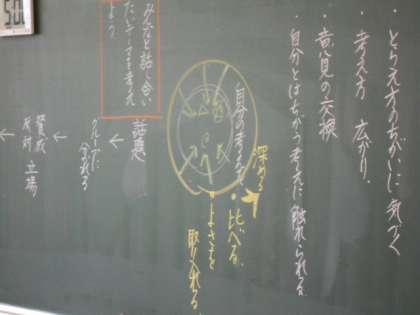 ・とらえ方のちがいに気づく
・考え方 広がり.
・意見の交換
・自分とはちがう考えに触れられる.
深める
自分の考えを
・比べる.
・よさを
取り入れる
みんなと話し合い
たいテーマを考え
よう
話題
グループに
分かれる
賛成
反対
立場